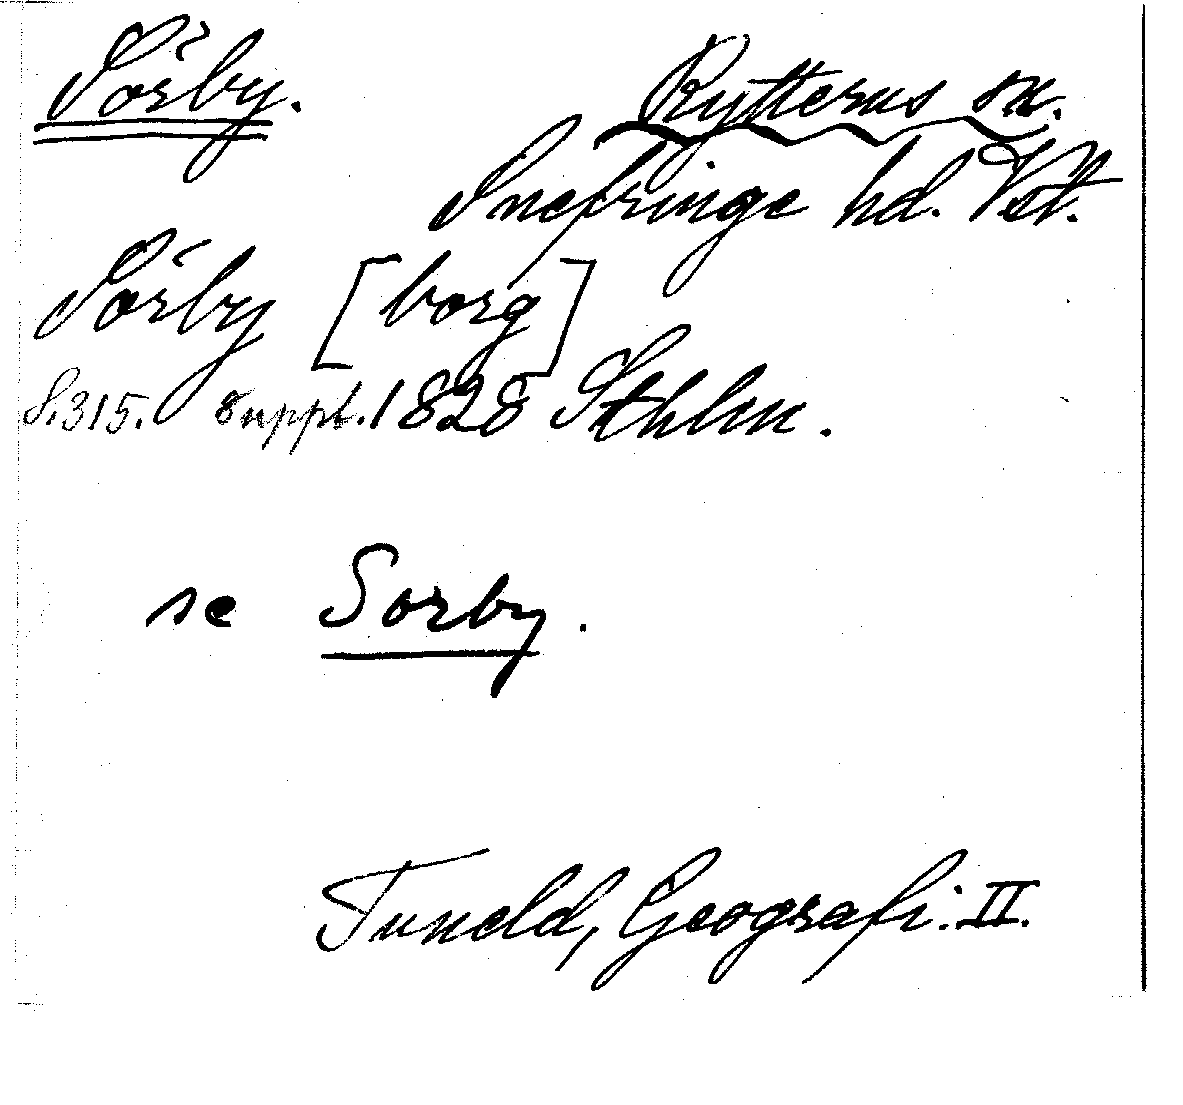 Sörby. Rytterns sn.
Snefringe hd. Vst.
Sörby [borg]
S. 315. Suppl. 1828 Sthlm.
se Sorby.
Tuneld, Geografi. II.